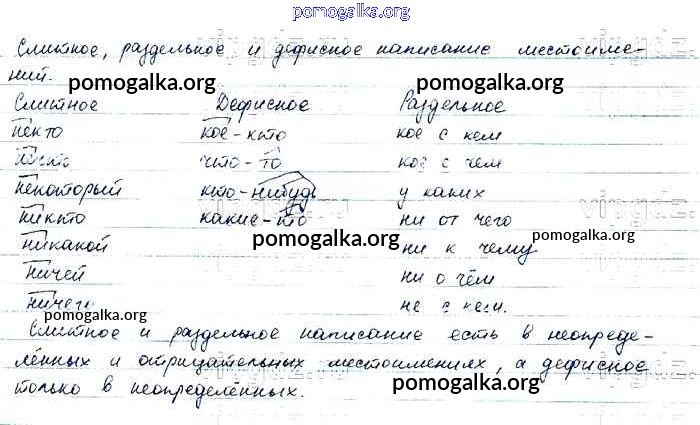 pomogalka.org
Слитное, раздельное и дефисное написание местоиме-
ний.
pomogalka.org pomogalka.org
Слитное Дефисное Раздельное
некто кое-кто кое с кем
что-то кое с чем
некоторый кто-нибудь у каких
никто какие-то ни от чего
никакой pomogalka.org ни к чему pomogalka.org
ничей ни о чём
ничего не с кем.
pomogalka.org
Слитное и раздельное написание есть в неопреде-
лённых и отрицательных местоимениях, а дефисное
только в неопределённых. pomogalka.org